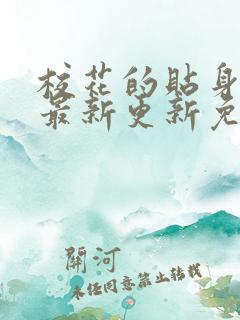 校花的貼身
最新更新免
關河
未经同意禁止转载